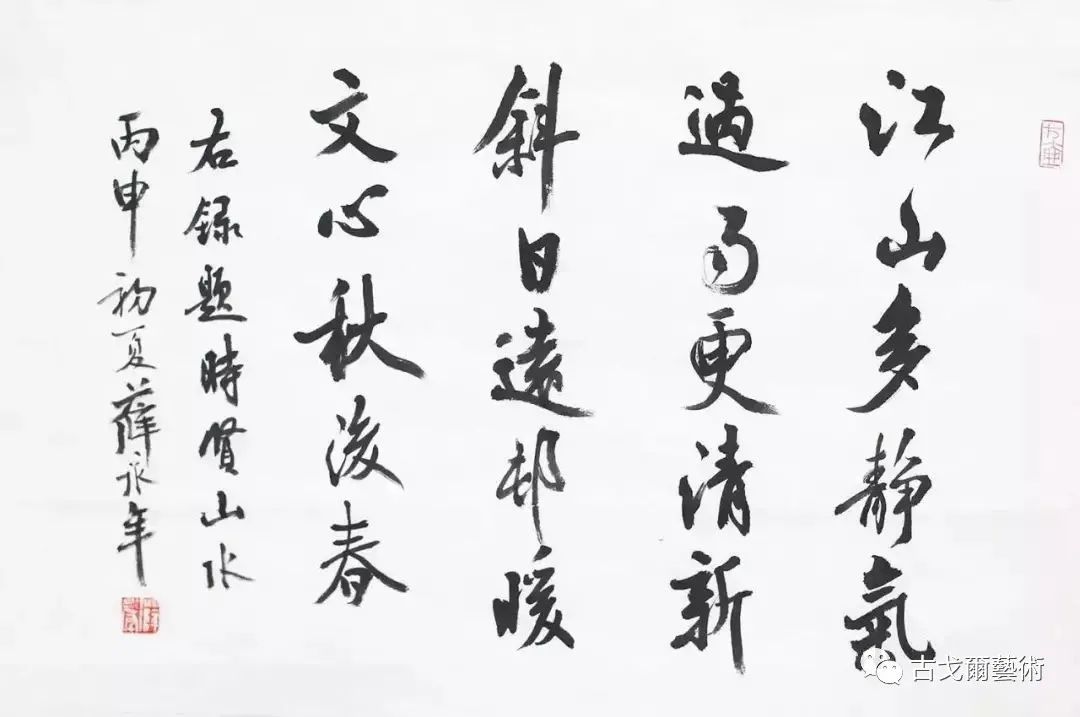 江山多靜氣
過雨更清新
斜日遠邨暖
文心秋後春
右録題時賢山水
丙申初夏薛永年
古戈爾藝術